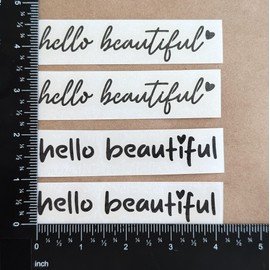 hello beautiful
hello beautiful
hello beautiful
hello beautiful
5
4
3
2
1
0
0 1 2 3 4 5
inch